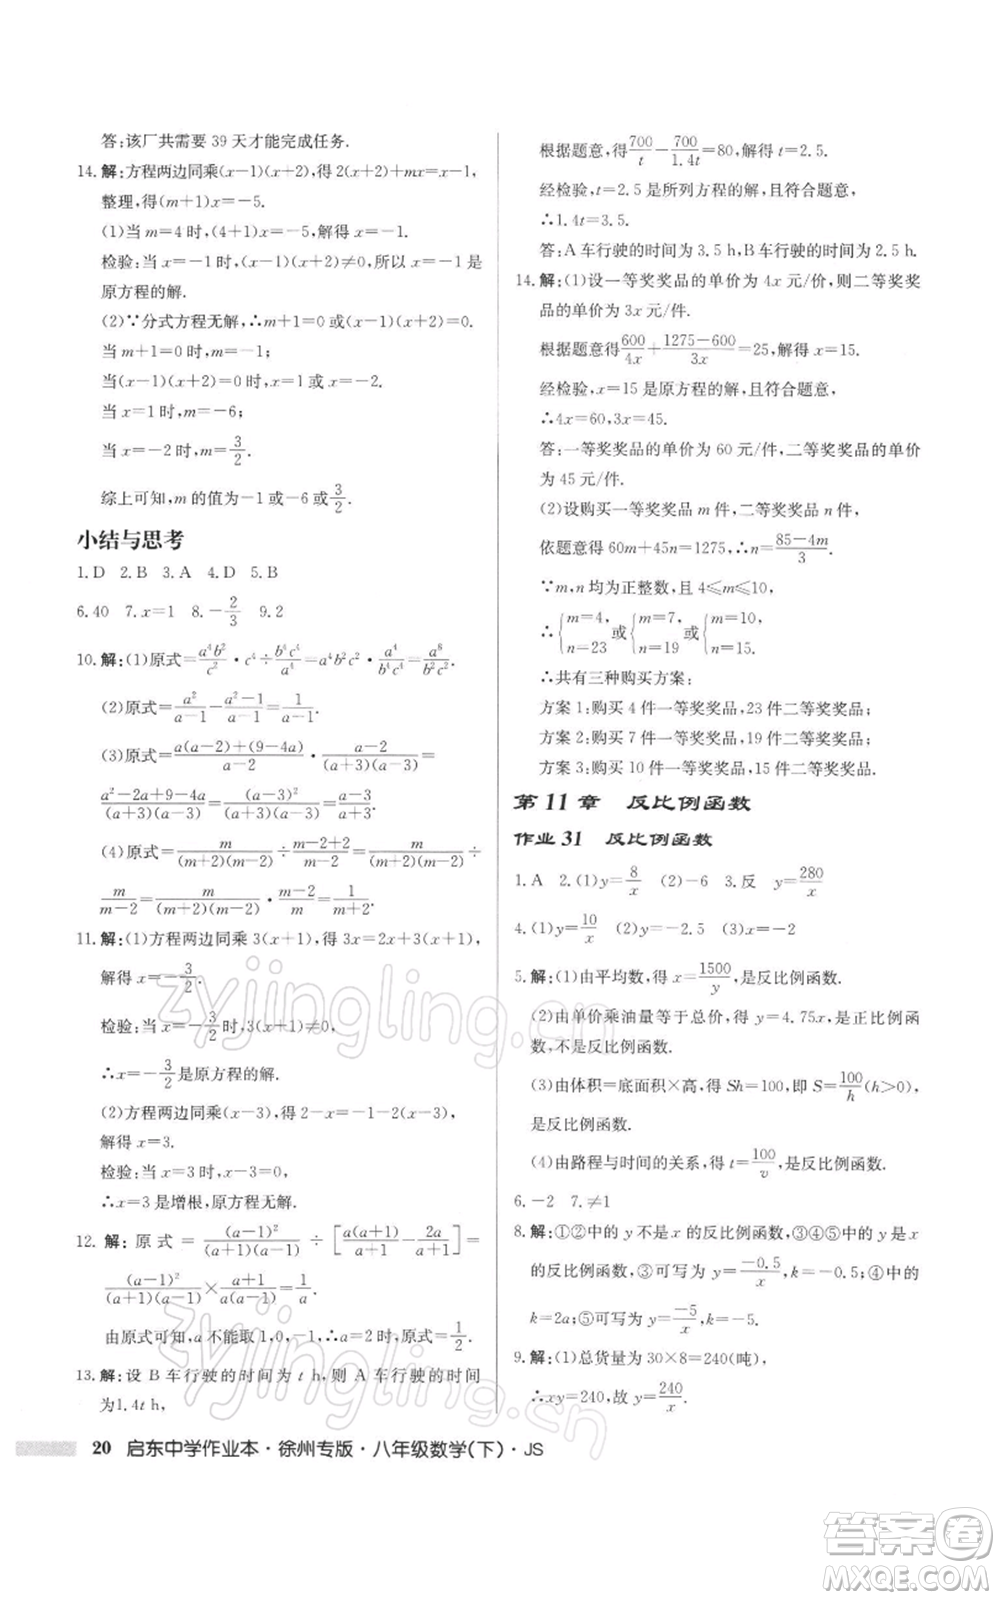 答:该厂共需要 39 天才能完成任务.
14.解:方程两边同乘(x-1)(x+2),得 2(x+2)+mx=x-1,
整理,得(m+1)x=-5.
(1)当 m=4 时,(4+1)x=-5,解得 x=-1.
检验:当 x=-1 时,(x-1)(x+2)≠0,所以 x=-1 是
原方程的解.
(2)∵分式方程无解,∴m+1=0 或(x-1)(x+2)=0.
当 m+1=0 时,m=-1;
当(x-1)(x+2)=0 时,x=1 或 x=-2.
当 x=1 时,m=-6;
当 x=-2 时,m=3/2.
综上可知,m 的值为-1 或-6 或3/2.
小结与思考
1.D 2.B 3.A 4.D 5.B
6.40 7.x=1 8.-2/3 9.2
10.解:(1)原式=a⁴b²/c²·c⁴÷b⁴c⁴/a⁴=a⁴b²c²·a⁴/b⁴c⁴=a⁸/b²c².
(2)原式=a²/(a-1)-(a²-1)/(a-1)=1/(a-1).
(3)原式=(a(a-2)+(9-4a))/(a-2)·(a-2)/((a+3)(a-3))=
(a²-2a+9-4a)/((a+3)(a-3))=(a-3)²/((a+3)(a-3))=(a-3)/(a+3).
(4)原式=m/((m+2)(m-2))÷(m-2+2)/(m-2)=m/((m+2)(m-2))÷
m/(m-2)=m/((m+2)(m-2))·(m-2)/m=1/(m+2).
11.解:(1)方程两边同乘 3(x+1),得 3x=2x+3(x+1),
解得 x=-3/2.
检验:当 x=-3/2时,3(x+1)≠0,
∴x=-3/2是原方程的解.
(2)方程两边同乘(x-3),得 2-x=-1-2(x-3),
解得 x=3.
检验:当 x=3 时,x-3=0,
∴x=3 是增根,原方程无解.
12.解:原式=(a-1)²/((a+1)(a-1))÷[a(a+1)/(a+1)-2a/(a+1)]=
(a-1)²/((a+1)(a-1))×(a+1)/(a(a-1))=1/a.
由原式可知,a 不能取 1,0,-1,∴a=2 时,原式=1/2.
13.解:设 B 车行驶的时间为 t h,则 A 车行驶的时间
为1.4t h,
根据题意,得700/t-700/1.4t=80,解得 t=2.5.
经检验,t=2.5 是所列方程的解,且符合题意.
∴1.4t=3.5.
答:A 车行驶的时间为 3.5 h,B 车行驶的时间为 2.5 h.
14.解:(1)设一等奖奖品的单价为 4x 元/价,则二等奖奖
品的单价为 3x 元/件.
根据题意得600/4x+(1275-600)/3x=25,解得 x=15.
经检验,x=15 是原方程的解,且符合题意,
∴4x=60,3x=45.
答:一等奖奖品的单价为 60 元/件,二等奖奖品的单价
为 45 元/件.
(2)设购买一等奖奖品 m 件,二等奖奖品 n 件,
依题意得 60m+45n=1275,∴n=(85-4m)/3.
∵m,n 均为正整数,且 4≤m≤10,
∴{m=4, n=23 或{m=7, n=19 或{m=10, n=15.
∴共有三种购买方案:
方案 1:购买 4 件一等奖奖品,23 件二等奖奖品;
方案 2:购买 7 件一等奖奖品,19 件二等奖奖品;
方案 3:购买 10 件一等奖奖品,15 件二等奖奖品.
第 11 章 反比例函数
作业 31 反比例函数
1.A 2.(1)y=8/x (2)-6 3.反 y=280/x
4.(1)y=10/x (2)y=-2.5 (3)x=-2
5.解:(1)由平均数,得 x=1500/y,是反比例函数.
(2)由单价乘油量等于总价,得 y=4.75x,是正比例函
数,不是反比例函数.
(3)由体积=底面积×高,得 Sh=100,即 S=100/h(h>0),
是反比例函数.
(4)由路程与时间的关系,得 t=100/v,是反比例函数.
6.-2 7.≠1
8.解:①②中的 y 不是 x 的反比例函数,③④⑤中的 y 是 x
的反比例函数,③可写为 y=-0.5/x,k=-0.5;④中的
k=2a;⑤可写为 y=-5/x,k=-5.
9.解:(1)总货量为 30×8=240(吨),
∴xy=240,故 y=240/x.
20 启东中学作业本·徐州专版·八年级数学(下)·JS
zyjingling.cn
zyjingling.cn
答案圈
MXQE.COM